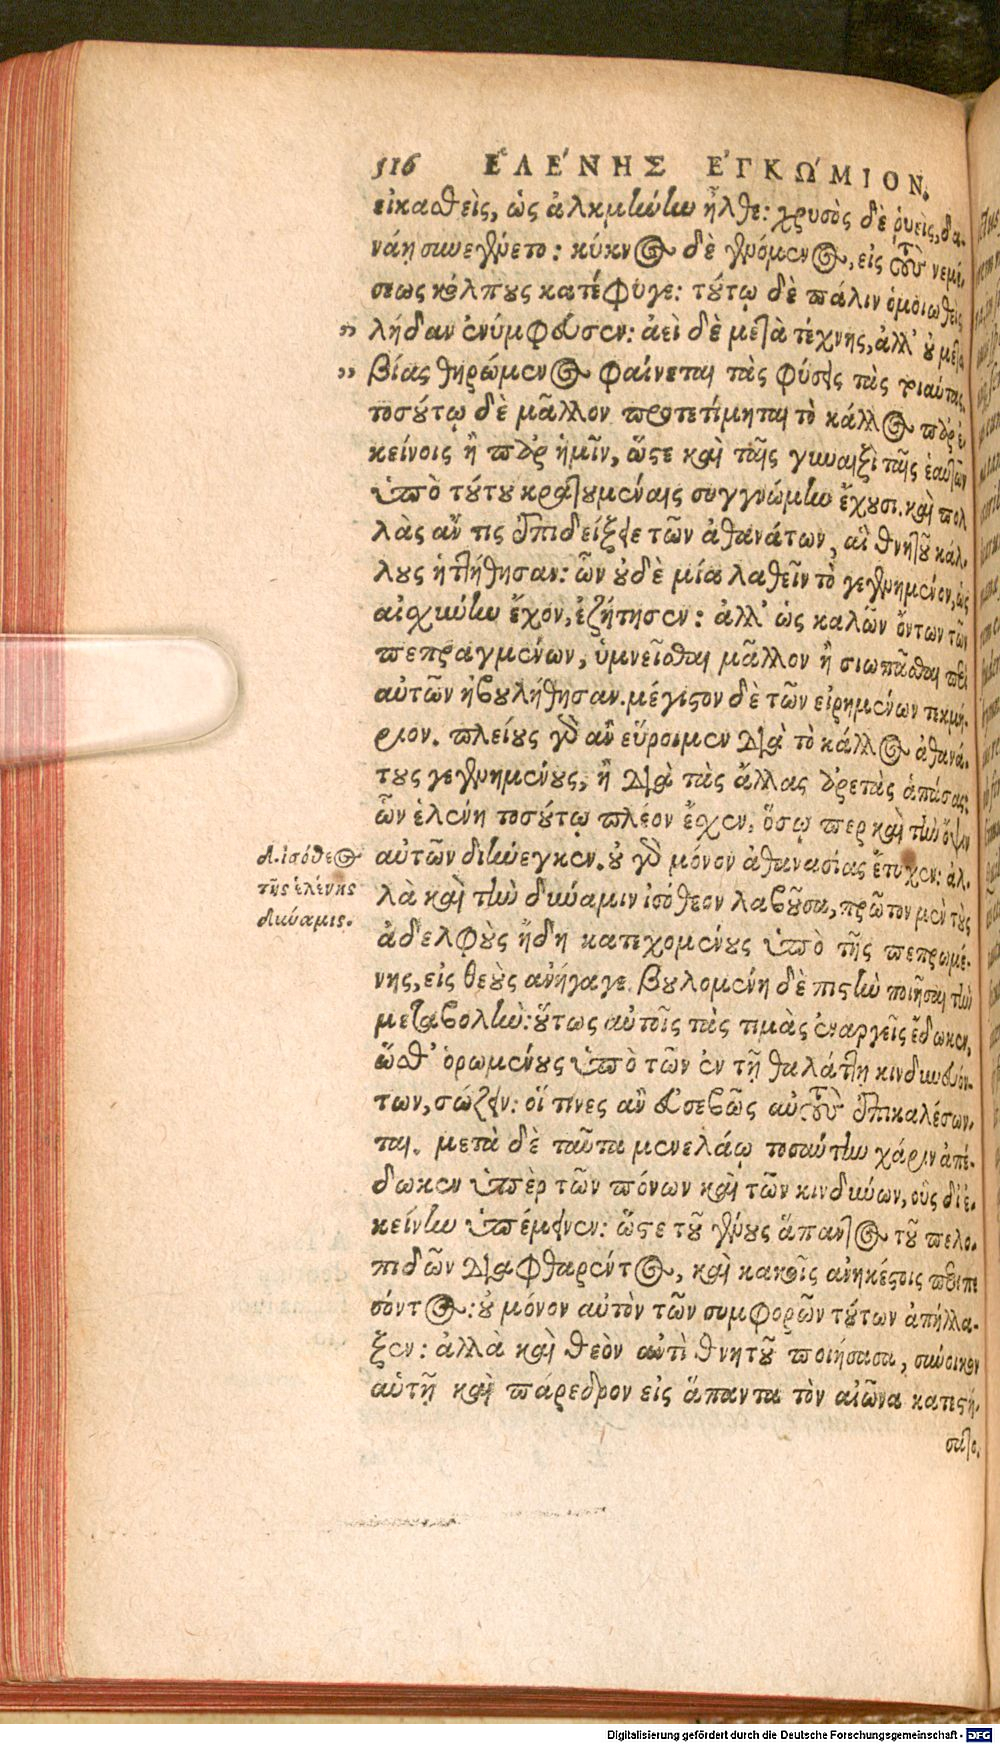 516 ἙΛΕ´ΝΗΣ ἘΓΚΩ´ΜΙΟΝ.
εἰκασθεὶς, ὡς ἀλκμήνην ἦλθε: χρυσὸς δὲ ῥυεὶς, δα-
νάῃ συνεγένετο: κύκνος δὲ γενόμενος, εἰς τοὺς νεμέ-
σεως κόλπους κατέφυγε: τούτῳ δὲ πάλιν ὁμοιωθεὶς
” λήδαν ἐνύμφευσεν: ἀεὶ δὲ μετὰ τέχνης, ἀλλ' οὐ μετὰ
” βίας θηρώμενος φαίνεται τὰς φύσεις τὰς τοιαύτας.
τοσούτῳ δὲ μᾶλλον προτετίμηται τὸ κάλλος παρ' ἐ-
κείνοις ἢ παρ' ἡμῖν, ὥστε καὶ ταῖς γυναιξὶ ταῖς ἑαυτῶν
ὑπὸ τούτου κρατουμέναις συγγνώμην ἔχουσι. καὶ πολ
λὰς ἄν τις ἐπιδείξειε τῶν ἀθανάτων, αἳ θνητοῦ κάλ-
λους ἡττήθησαν: ὧν οὐδὲ μία λαθεῖν τὸ γεγενημένον, ὡς
αἰσχύνην ἔχον, ἐζήτησεν: ἀλλ' ὡς καλῶν ὄντων τῶν
πεπραγμένων, ὑμνεῖσθαι μᾶλλον ἢ σιωπᾶσθαι περὶ
αὐτῶν ἠβουλήθησαν. μέγιστον δὲ τῶν εἰρημένων τεκμή-
ριον. πλείους γὰρ ἂν εὕροιμεν διὰ τὸ κάλλος ἀθανά-
τους γεγενημένους, ἢ διὰ τὰς ἄλλας ἀρετὰς ἁπάσας:
ὧν ἑλένη τοσούτῳ πλέον ἔχεν, ὅσῳ περ καὶ τὴν ὄψιν
αὐτῶν διήνεγκεν. οὐ γὰρ μόνον ἀθανασίας ἔτυχεν: ἀλ-
Δ. ἰσόθεος
τῆς ἑλένης
δύναμις.
λὰ καὶ τὴν δύναμιν ἰσόθεον λαβοῦσα, πρῶτον μὲν τοὺς
ἀδελφοὺς ἤδη κατεχομένους ὑπὸ τῆς πεπρωμέ-
νης, εἰς θεοὺς ἀνήγαγε. βουλομένη δὲ πιστὴν ποιῆσαι τὴν
μεταβολὴν: οὕτως αὐτοῖς τὰς τιμὰς ἐναργεῖς ἔδωκεν,
ὥσθ' ὁρωμένους ὑπὸ τῶν ἐν τῇ θαλάττῃ κινδυνευόν-
των, σώζειν: οἵ τινες ἂν εὐσεβῶς αὐτοὺς ἐπικαλέσων-
ται. μετὰ δὲ ταῦτα μενελάῳ τοσαύτην χάριν ἀπέ-
δωκεν ὑπὲρ τῶν πόνων καὶ τῶν κινδύνων, οὓς δι' ἐ-
κείνην ὑπέμεινεν: ὥστε τοῦ γένους ἅπαντος τοῦ πελο-
πιδῶν διαφθαρέντος, καὶ κακοῖς ἀνηκέστοις περιπε
σόντος: οὐ μόνον αὐτὸν τῶν συμφορῶν τούτων ἀπήλλα-
ξεν: ἀλλὰ καὶ θεὸν ἀντὶ θνητοῦ ποιήσασα, σύνοικον
αὑτῇ καὶ πάρεδρον εἰς ἅπαντα τὸν αἰῶνα κατεστή-
σατο.
Digitalisierung gefördert durch die Deutsche Forschungsgemeinschaft - DFG